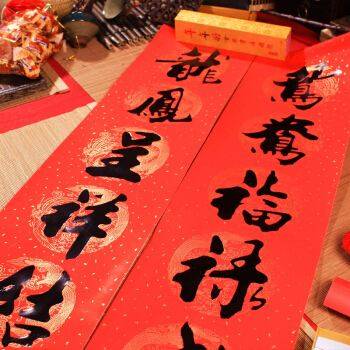 鴛鴦福祿
龍鳳呈祥結